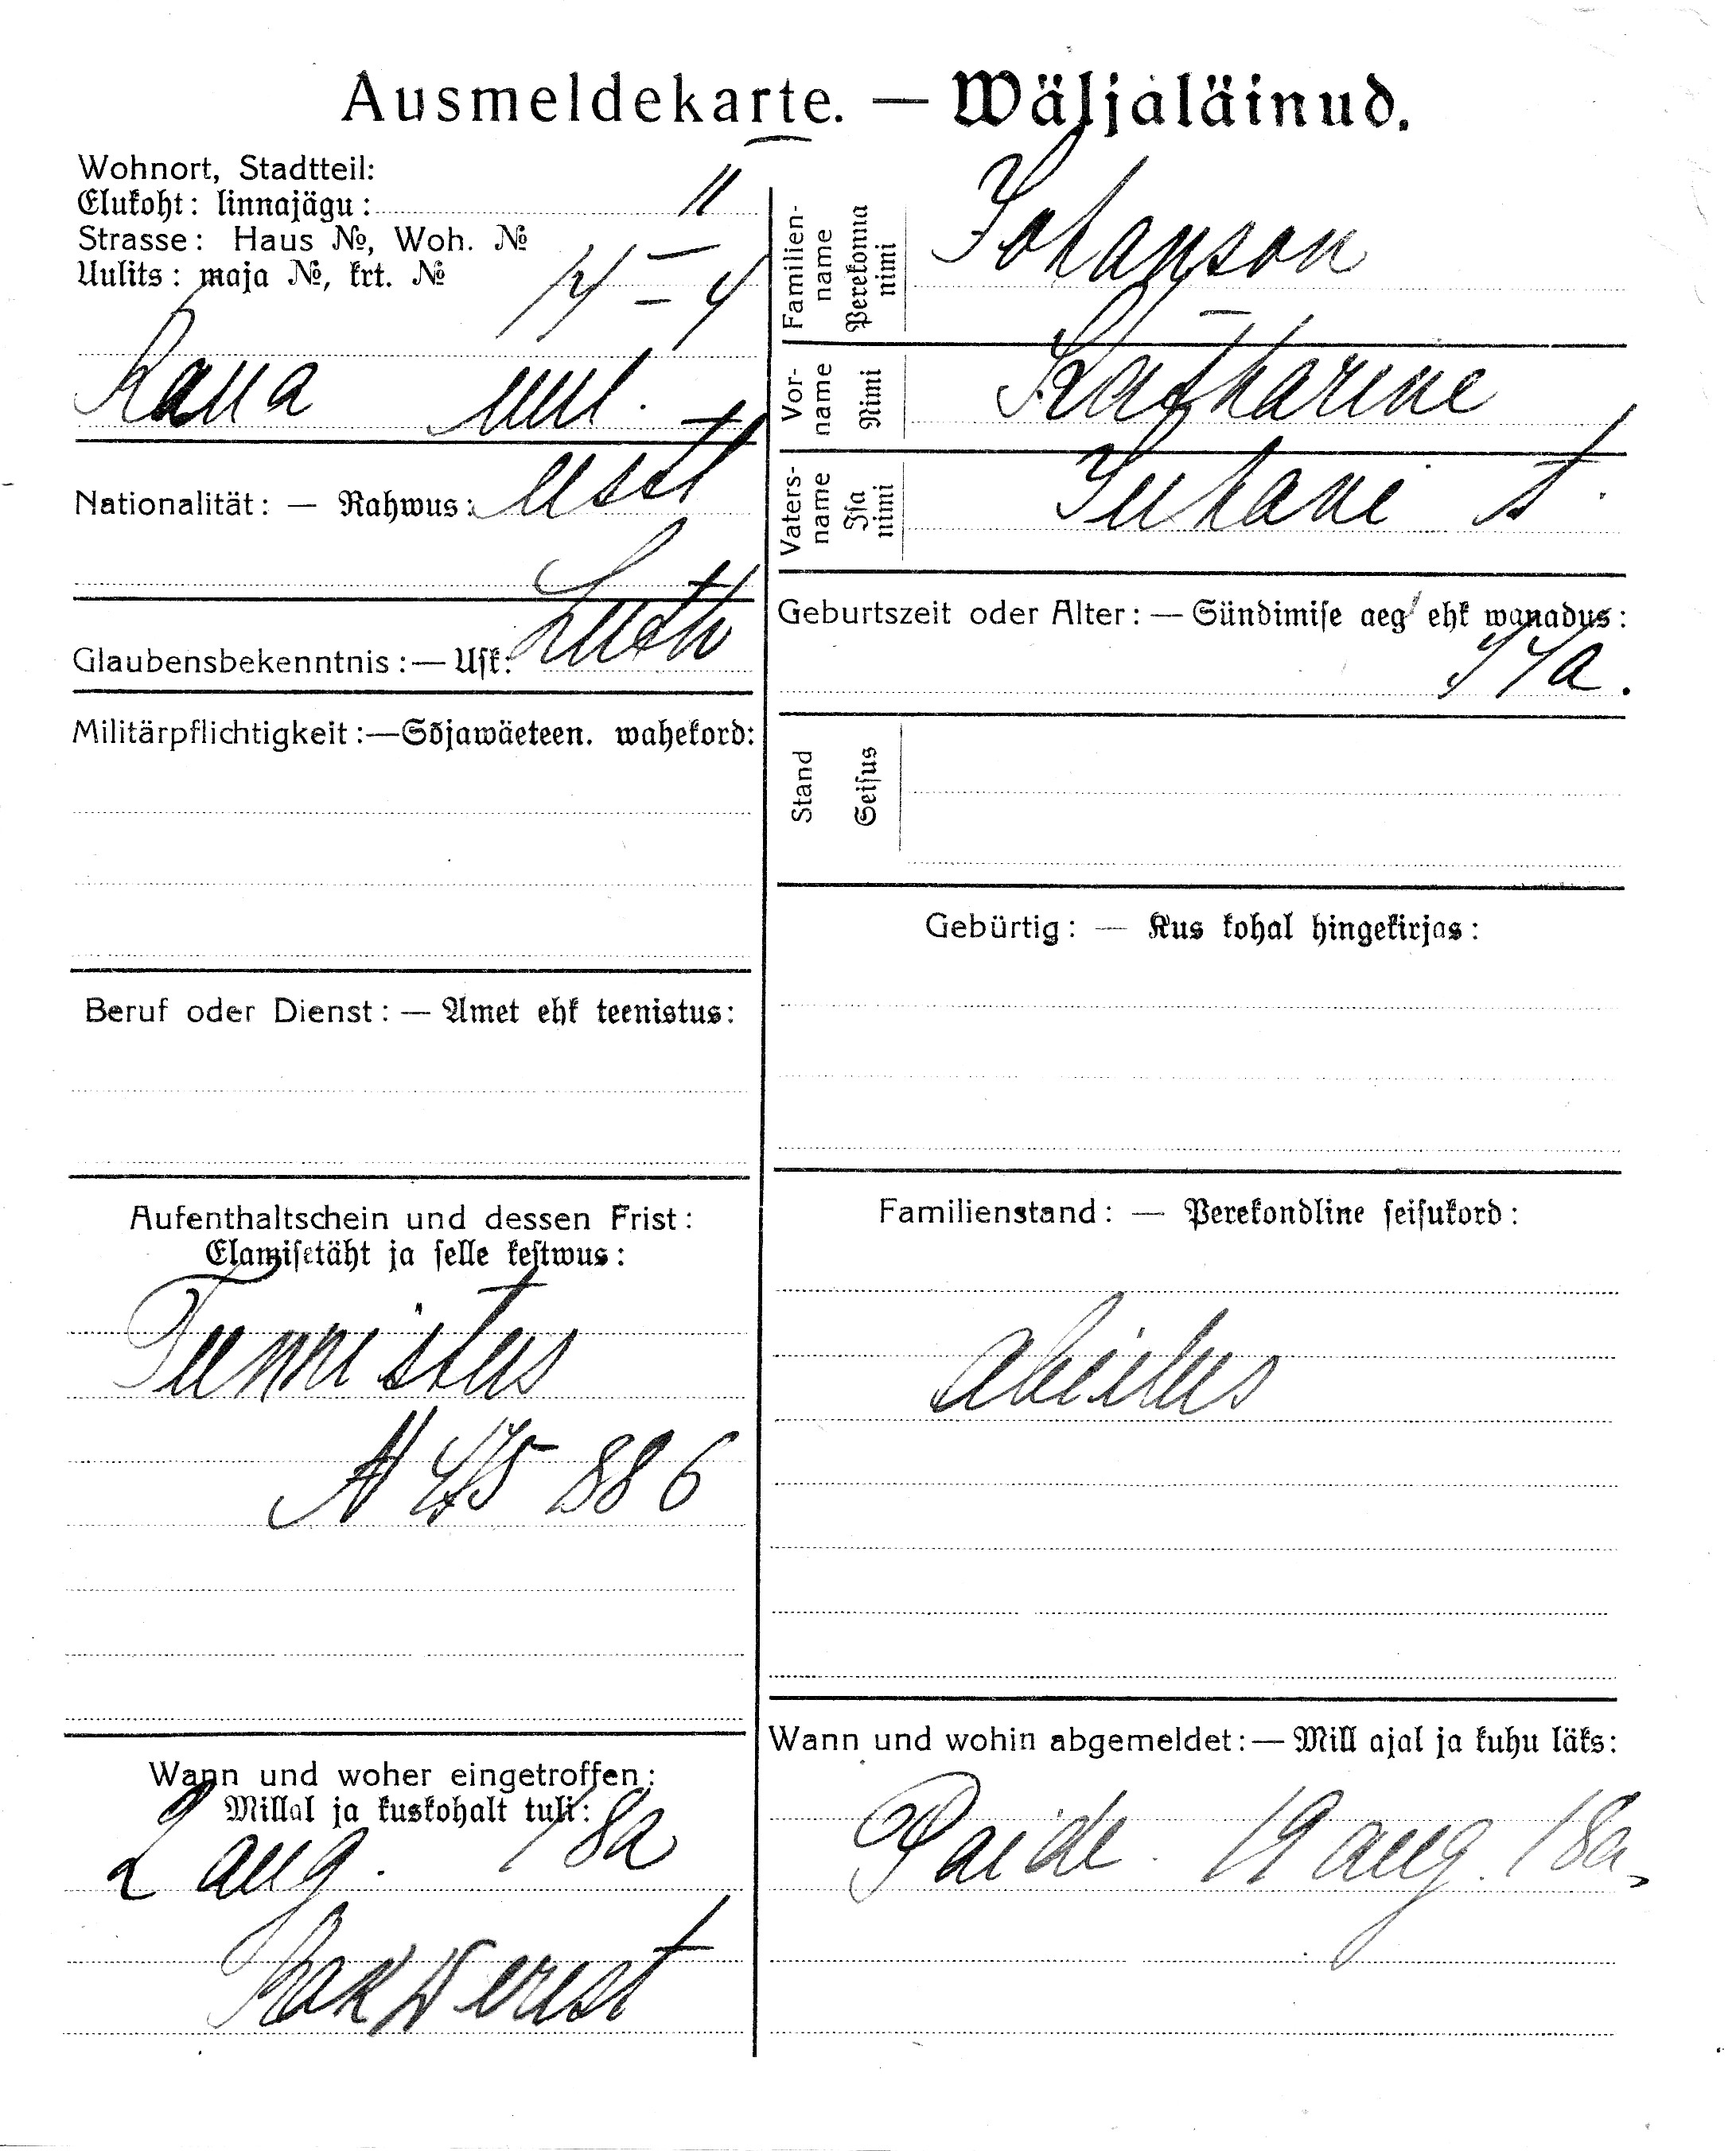 Ausmeldekarte. — Wäljaläinud.
Wohnort, Stadtteil:
Elukoht: linnajägu: II
Strasse: Haus №, Woh. №
Uulits: maja №, krt. № 14 – 4
uul.
Nationalität: — Rahwus: eestl
Glaubensbekenntnis: — Usk: Luth
Militärpflichtigkeit: — Sõjawäeteen. wahekord:
Beruf oder Dienst: — Amet ehk teenistus:
Aufenthaltschein und dessen Frist:
Elamisetäht ja selle kestwus:
Tunnistus
886
Wann und woher eingetroffen:
Millal ja kuskohalt tuli:
2 aug. 18a
Rakwerest
Familien-name Perekonna nimi Johanson
Vor-name Nimi Katharine
Vaters-name Isa nimi Juhani t.
Geburtszeit oder Alter: — Sündimise aeg ehk wanadus:
Stand Seisus
Gebürtig: — Kus kohal hingekirjas:
Familienstand: — Perekondline seisukord:
abielus
Wann und wohin abgemeldet: — Mill ajal ja kuhu läks:
Paide. 19 aug. 18a.